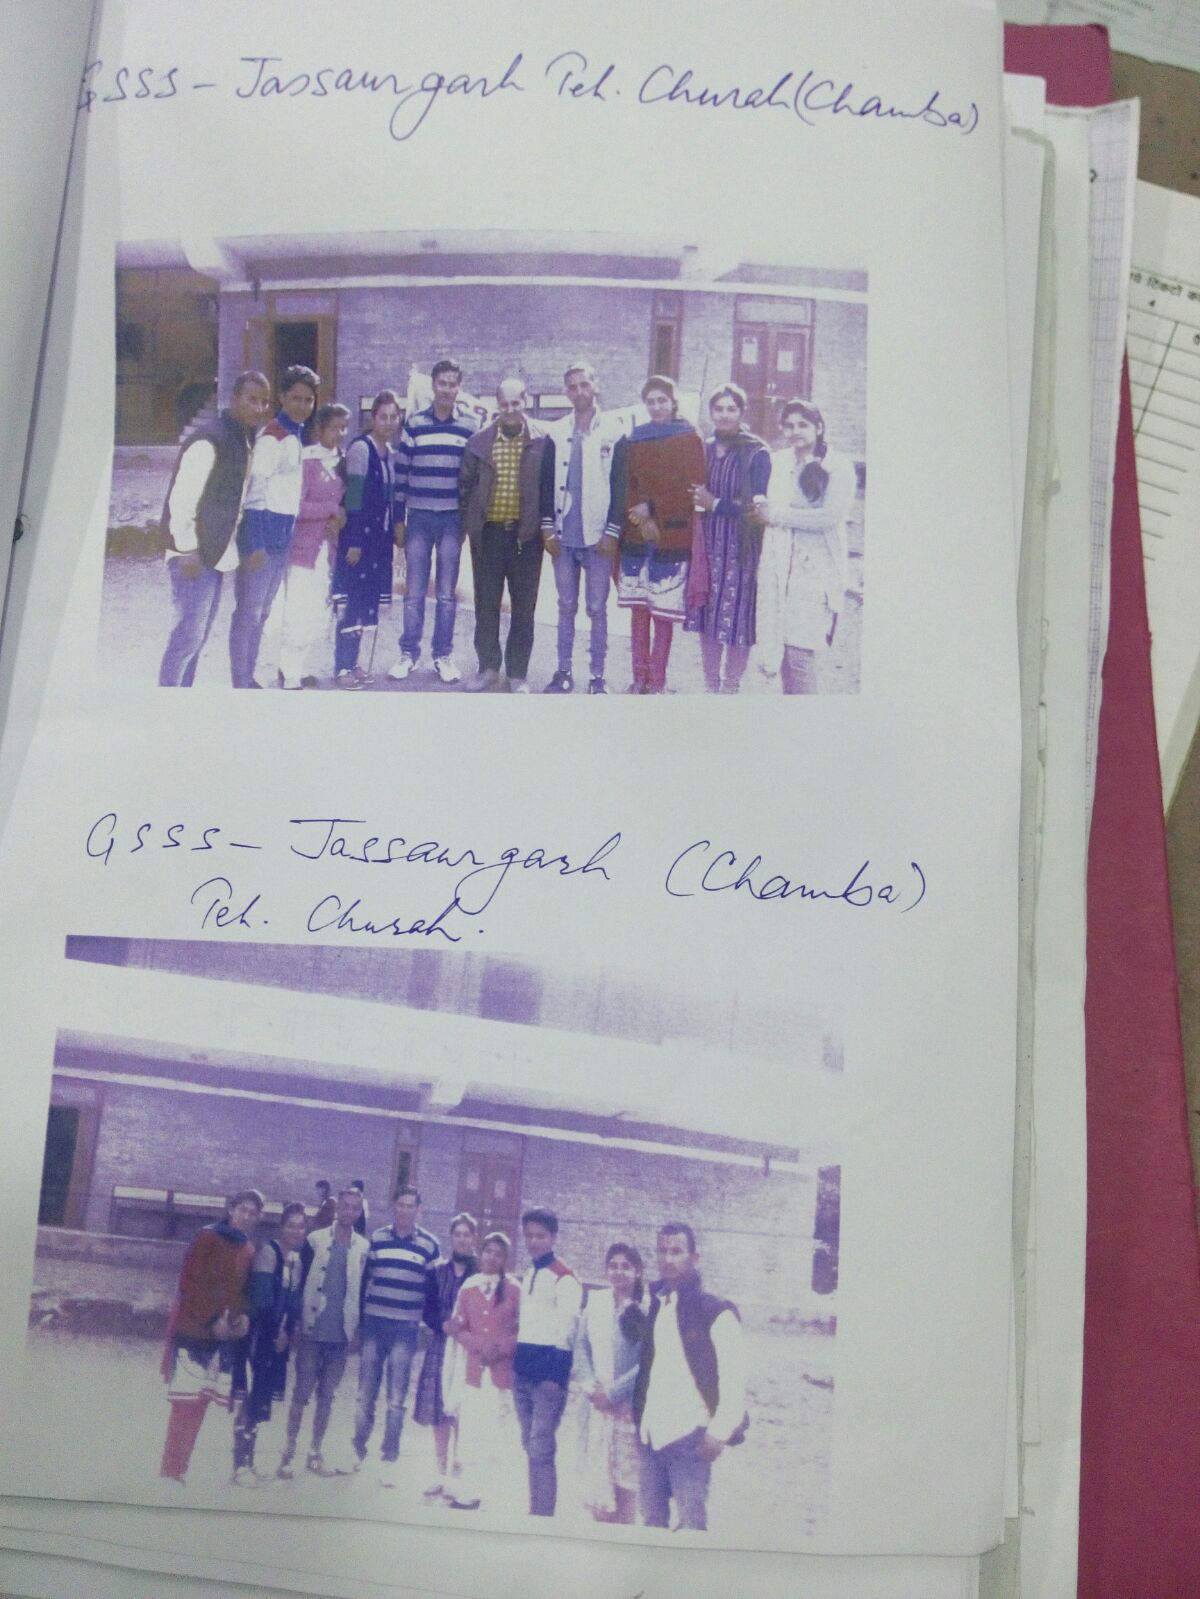 GSSS - Jassaurgarh Teh. Churah (Chamba)
GSSS - Jassaurgarh (Chamba)
Teh. Churah.